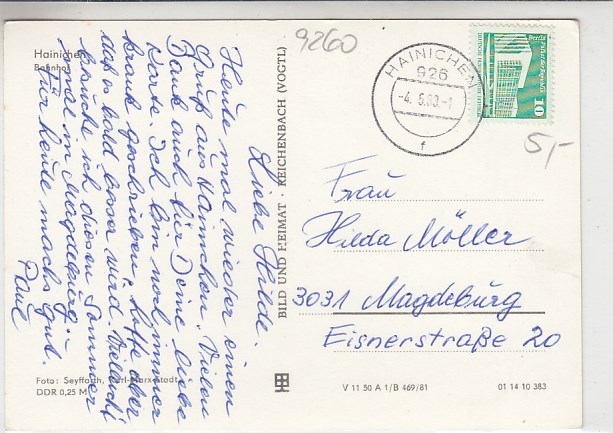 Hainichen
Bahnhof
9260
HAINICHEN
926
-4.5.83-1
f
Berlin, Palast der Republik
10
DDR
5,-
Liebe Hilde.
Heute mal wieder einen
Gruß aus Hainichen. Vielen
Dank auch für Deine liebe
Karte. Ich bin noch immer
krank geschrieben, hoffe aber
daß es bald besser wird. Vielleicht
besuche ich diesen Sommer
mal in Magdeburg.-
Für heute machs gut.
Paul
BILD UND HEIMAT REICHENBACH (VOGTL)
Frau
Hilda Möller
3031 Magdeburg
Eisnerstraße 20
Foto: Seyffarth, Karl-Marx-Stadt
DDR 0,25 M
V 11 50 A 1/B 469/81
01 14 10 383